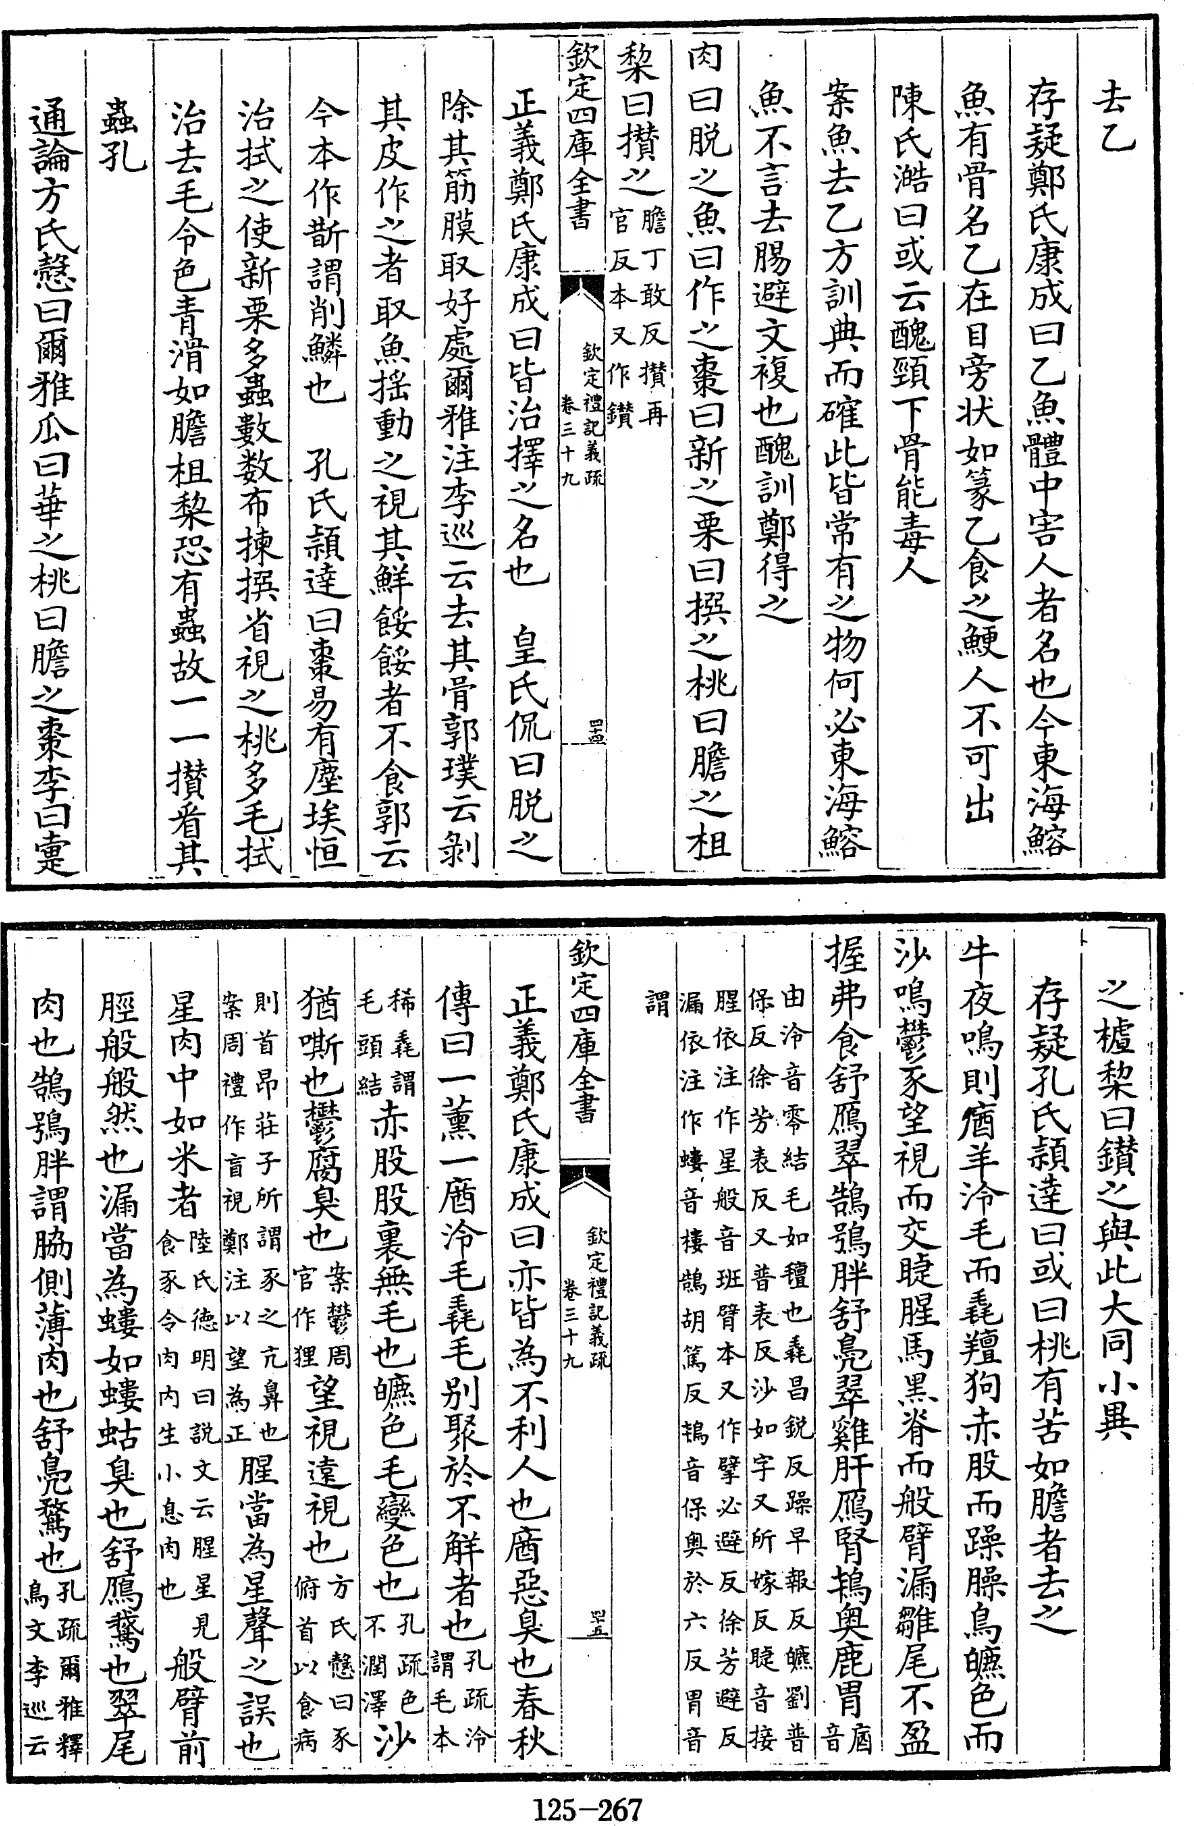 去乙
存疑鄭氏康成曰乙魚體中害人者名也今東海鰫
魚有骨名乙在目旁状如篆乙食之鯁人不可出
陳氏澔曰或云醜頸下骨能毒人
案魚去乙方訓典而確此皆常有之物何必東海鰫
魚不言去賜避文複也醜訓鄭得之
肉曰脱之魚曰作之棗曰新之栗曰撰之桃曰膽之柤
棃曰攅之膽丁敢反攅再
官反本又作鑚
欽定四庫全書
欽定禮記義疏
卷三十九
四十四
正義鄭氏康成曰皆治擇之名也 皇氏侃曰脱之
除其筋膜取好處爾雅注李巡云去其骨郭璞云剝
其皮作之者取魚揺動之視其鮮餒餒者不食郭云
今本作斮謂削鱗也 孔氏頴達曰棗易有塵埃恒
治拭之使新栗多蟲數数布揀撰省視之桃多毛拭
治去毛令色青滑如膽柤棃恐有蟲故一一攅㸔其
蟲孔
通論方氏慤曰爾雅瓜曰華之桃曰膽之棗李曰疐
之樝棃曰鑚之與此大同小異
存疑孔氏頴達曰或曰桃有苦如膽者去之
牛夜鳴則庮羊泠毛而毳羶狗赤股而躁臊鳥皫色而
沙鳴鬱豕望視而交睫腥馬黒脊而般臂漏雛尾不盈
握弗食舒鴈翠鵠鴞胖舒鳧翠雞肝鴈腎鴇奥鹿胃庮
音
由泠音零結毛如氊也毳昌鋭反躁早報反皫劉普
保反徐芳表反又普表反沙如字又所嫁反睫音接
腥依注作星般音班臂本又作擘必避反徐芳避反
漏依注作螻音樓鵠胡篤反鴇音保奥於六反胃音
謂
欽定四庫全書
欽定禮記義疏
卷三十九
四十五
正義鄭氏康成曰亦皆為不利人也庮惡臭也春秋
傳曰一薫一庮泠毛毳毛别聚於不解者也孔疏泠
謂毛本
稀毳謂
毛頭結赤股股裏無毛也皫色毛變色也孔疏色
不潤澤沙
猶嘶也鬱腐臭也案鬱周
官作貍望視遠視也方氏慤曰豕
俯首以食病
則首昻莊子所謂豕之亢鼻也
案周禮作盲視鄭注以望為正腥當為星聲之誤也
星肉中如米者陸氏徳明曰説文云腥星見
食豕令肉内生小息肉也般臂前
脛般般然也漏當為螻如螻蛄臭也舒鴈鵞也翠尾
肉也鵠鴞胖謂脇側薄肉也舒鳧鶩也孔疏爾雅釋
鳥文李巡云
125-267